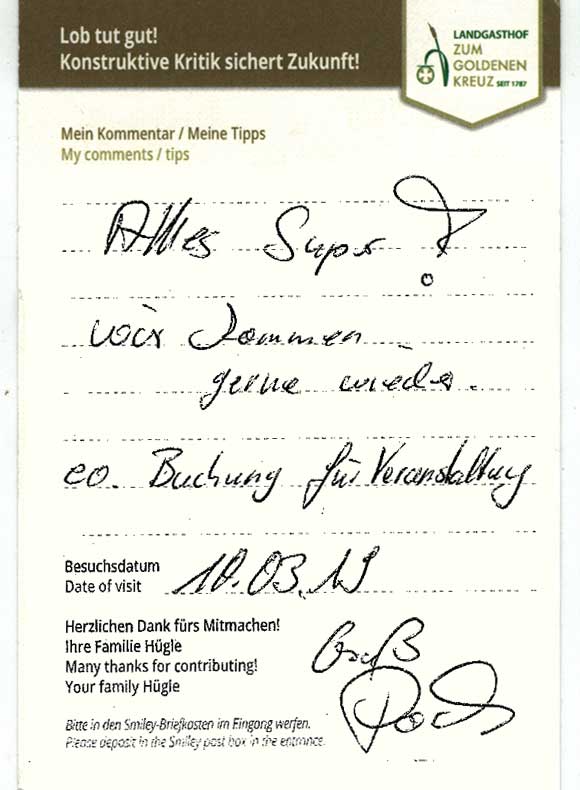 Lob tut gut!
Konstruktive Kritik sichert Zukunft!
LANDGASTHOF
ZUM
GOLDENEN
KREUZ SEIT 1787
Mein Kommentar / Meine Tipps
My comments / tips
Alles Super!
wir kommen
gerne wieder.
ev. Buchung für Veranstaltung
Besuchsdatum
Date of visit
10.03.19
Herzlichen Dank fürs Mitmachen!
Ihre Familie Hügle
Many thanks for contributing!
Your family Hügle
Gruß
Bitte in den Smiley-Briefkosten im Eingang werfen.
Please deposit in the Smiley post box in the entrance.